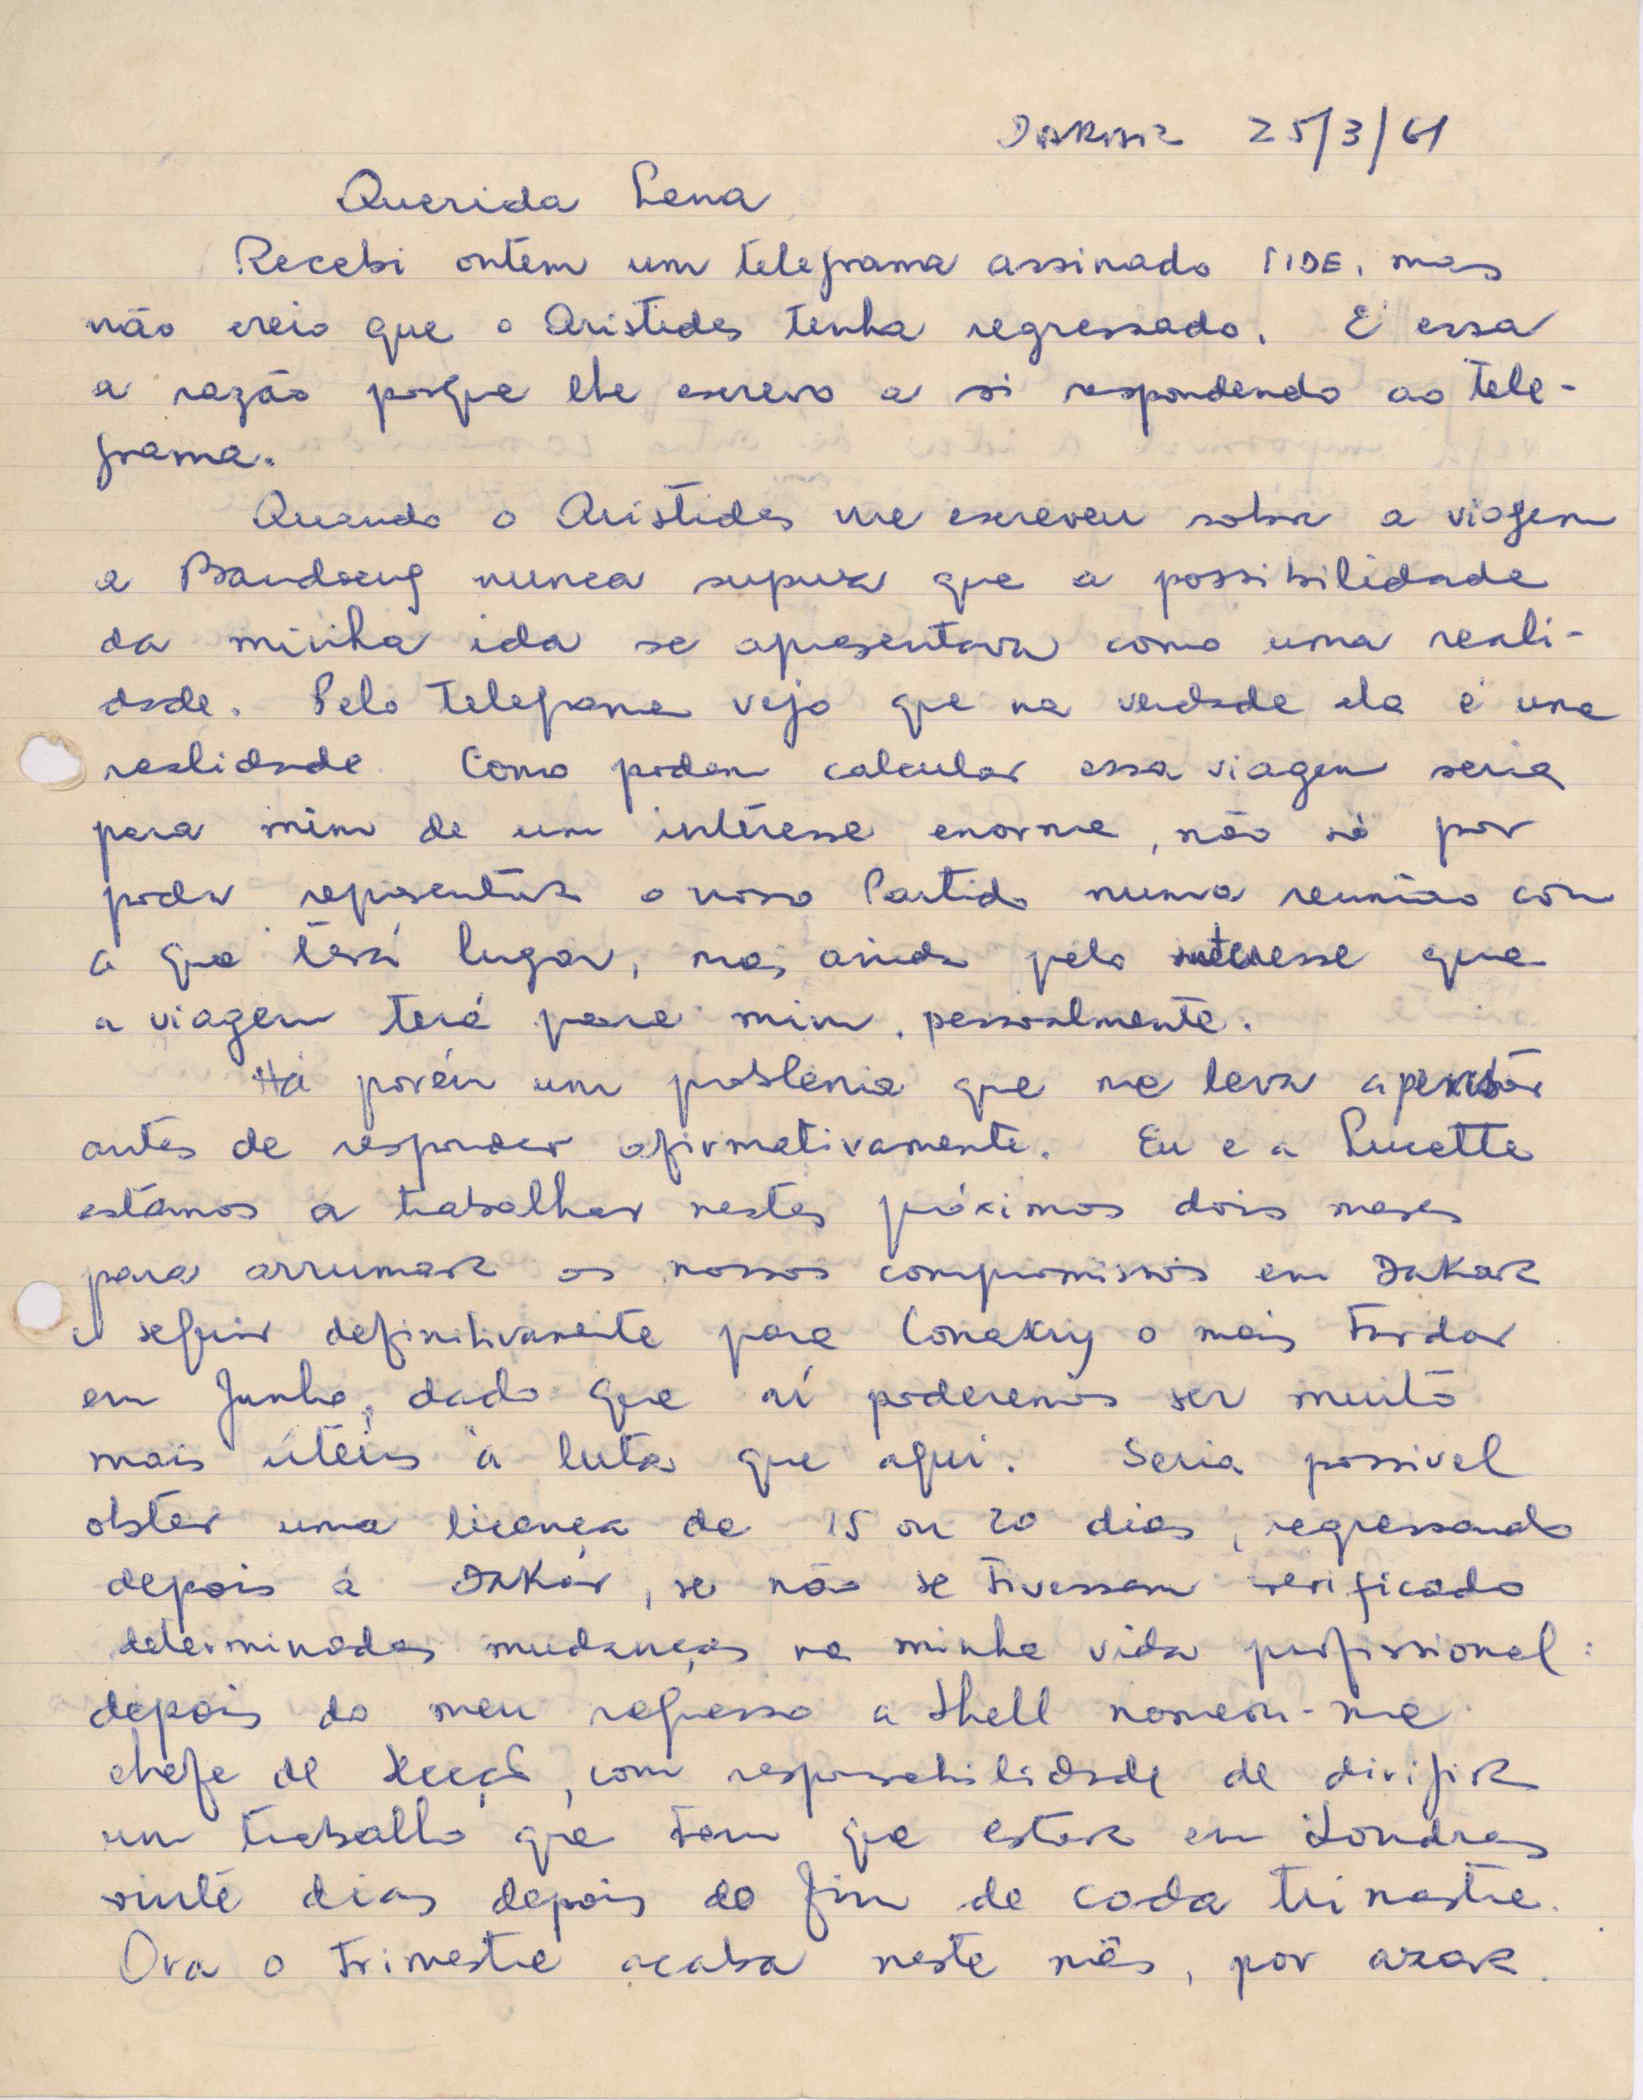 DAKAR 25/3/61
Querida Lena
Recebi ontem um telegrama assinado TIDE, mas
não creio que o Aristides tenha regressado. E' essa
a razão porque lhe escrevo a si respondendo ao tele-
grama.
Quando o Aristides me escreveu sobre a viagem
a Bandoeng nunca supuz que a possibilidade
da minha ida se apresentava como uma reali-
dade. Pelo telegrama vejo que na verdade ela é uma
realidade. Como podem calcular essa viagem seria
para mim de um intêresse enorme, não só por
poder representar o nosso Partido numa reunião com
a que terá lugar, mas ainda pelo interesse que
a viagem terá para mim, pessoalmente.
Há porém um problema que me leva a pensar
antes de responder afirmativamente. Eu e a Lucette
estámos a trabalhar nestes próximos dois meses
para arrumar os nossos compromissos em Dakar
e seguir definitivamente para Conakry o mais tardar
em Junho, dado que aí poderemos ser muito
mais úteis à luta que aqui. Seria possivel
obter uma licença de 15 ou 20 dias, regressando
depois a Dakar, se não se tivessem verificado
determinadas mudanças na minha vida profissional:
depois do meu regresso a Shell nomeou-me
chefe de secção, com responsabilidade de dirigir
um trabalho que tem que estar em Londres
vinte dias depois do fim de cada trimestre.
Ora o trimestre acaba neste mês, por azar.